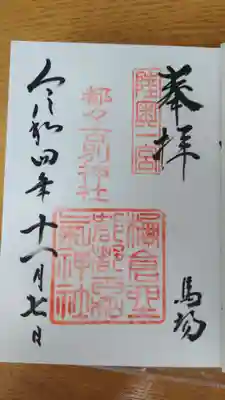 奉拝
陸奥一宮
都々古別神社
馬場
令和四年十一月七日